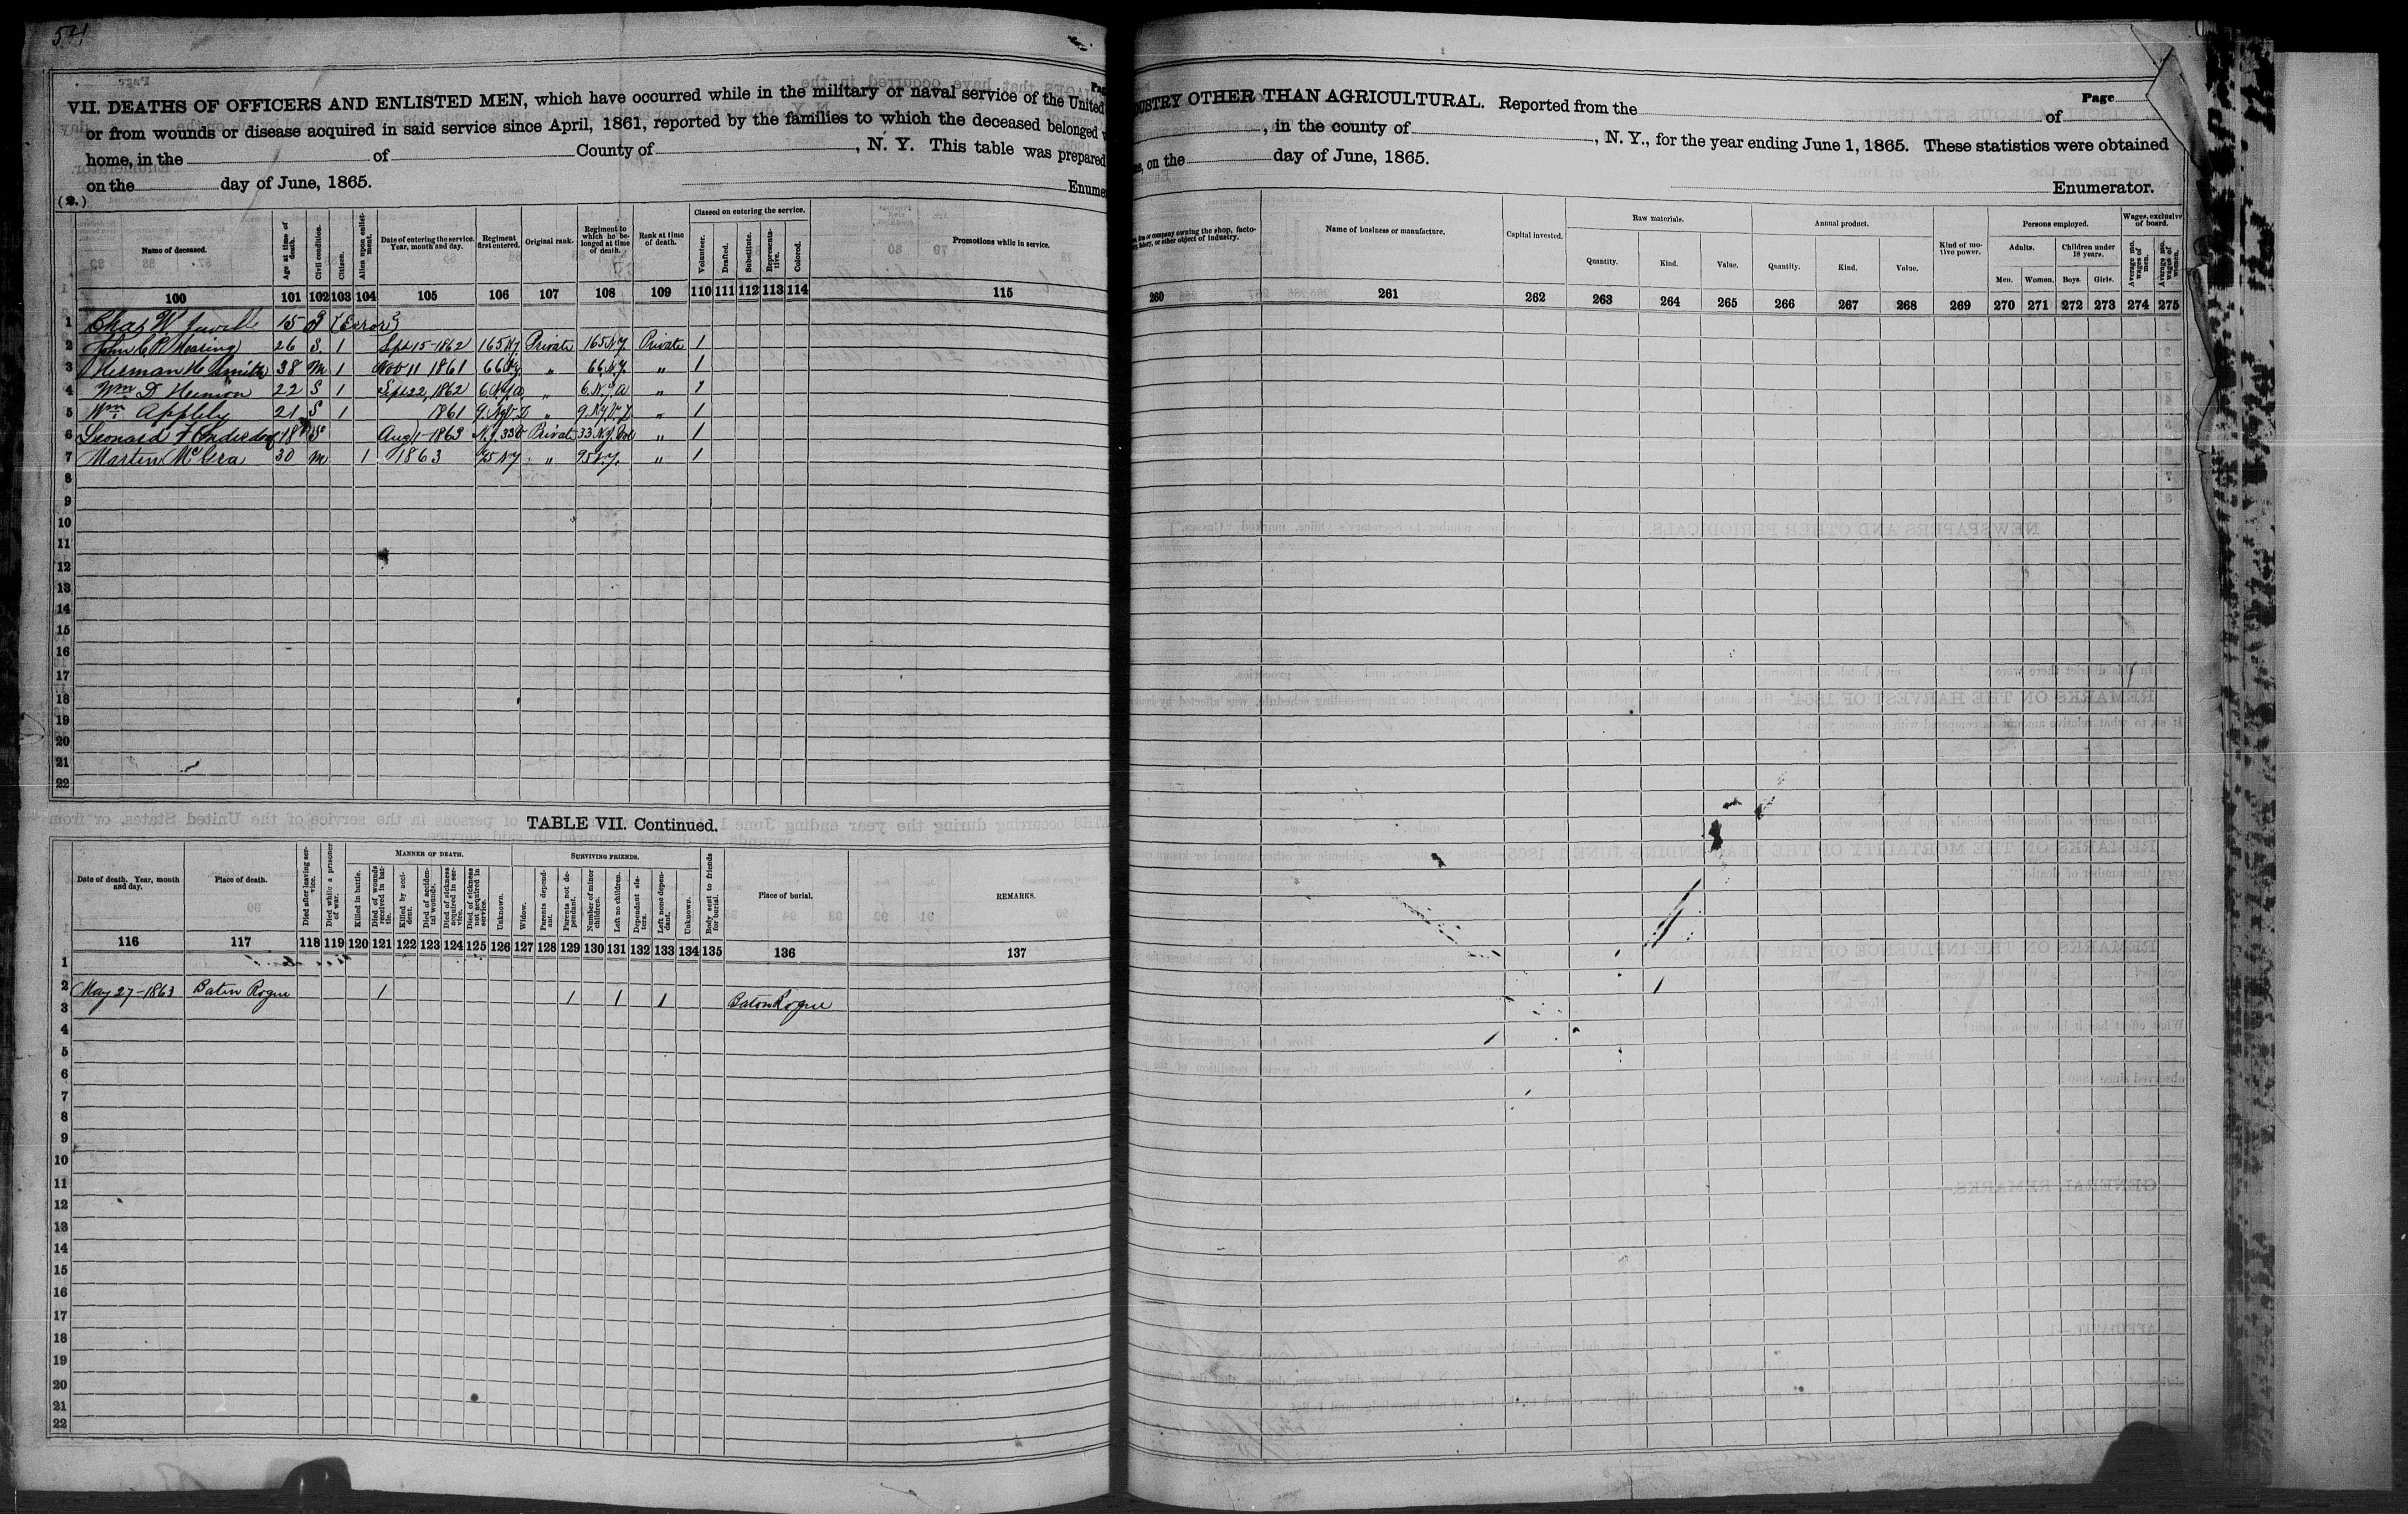 54
VII. DEATHS OF OFFICERS AND ENLISTED MEN, which have occurred while in the military or naval service of the United
or from wounds or disease acquired in said service since April, 1861, reported by the families to which the deceased belonged
home, in the of County of , N. Y. This table was prepared
on the day of June, 1865.
Enume
(2.)
Classed on entering the service.
Name of deceased. Age at time of death. Civil condition. Citizen. Alien upon enlistment. Date of entering the service. Year, month and day. Regiment first entered. Original rank. Regiment to which he belonged at time of death. Rank at time of death. Volunteer. Drafted. Substitute. Representative. Colored. Promotions while in service.
100 101 102 103 104 105 106 107 108 109 110 111 112 113 114 115
1 Chas W. 15 (Error)
2 John C. P. 26 S. 1 Sept 15-1862 165 NY Private 165 N.Y. Private 1
3 Herman H Smith 38 M 1 Nov 11 1861 66 NY " 66 N.Y. " 1
4 Wm D Henion 22 S 1 Sept 22, 1862 6 NY a " 6. N.Y. a " 1
5 Wm. Appleby 21 S 1 1861 9. NYV " 9. NY V. " 1
6 Leonard F Onderdonk 18 S Aug 1-1863 N.J. 33 Private 33 N.J. Vol " 1
7 Marten McCrea 30 M 1 1863 95 NY " 95 N.Y. " 1
8
9
10
11
12
13
14
15
16
17
18
19
20
21
22
TABLE VII. Continued.
MANNER OF DEATH. SURVIVING FRIENDS.
Date of death. Year, month and day. Place of death. Died after leaving service. Died while a prisoner of war. Killed in battle. Died of wounds received in battle. Killed by accident. Died of accidental wounds. Died of sickness acquired in service. Died of sickness not acquired in service. Unknown. Widow. Parents dependant. Parents not dependant. Number of minor children. Left no children. Dependant sisters. Left none dependant. Unknown. Body sent to friends for burial. Place of burial. REMARKS.
116 117 118 119 120 121 122 123 124 125 126 127 128 129 130 131 132 133 134 135 136 137
1
2 May 27-1863 Baten Rogue 1 1 1 1 Baton Rogue
3
4
5
6
7
8
9
10
11
12
13
14
15
16
17
18
19
20
21
22
USTRY OTHER THAN AGRICULTURAL. Reported from the of
Page
, in the county of , N. Y., for the year ending June 1, 1865. These statistics were obtained
me, on the day of June, 1865.
Enumerator.
Raw materials. Annual product. Persons employed. Wages, exclusive of board.
or company owning the shop, factory, or other object of industry. Name of business or manufacture. Capital invested. Quantity. Kind. Value. Quantity. Kind. Value. Kind of motive power. Adults. Men. Women. Children under 18 years. Boys. Girls. Average mo. wages of men. Average mo. wages of women.
260 261 262 263 264 265 266 267 268 269 270 271 272 273 274 275